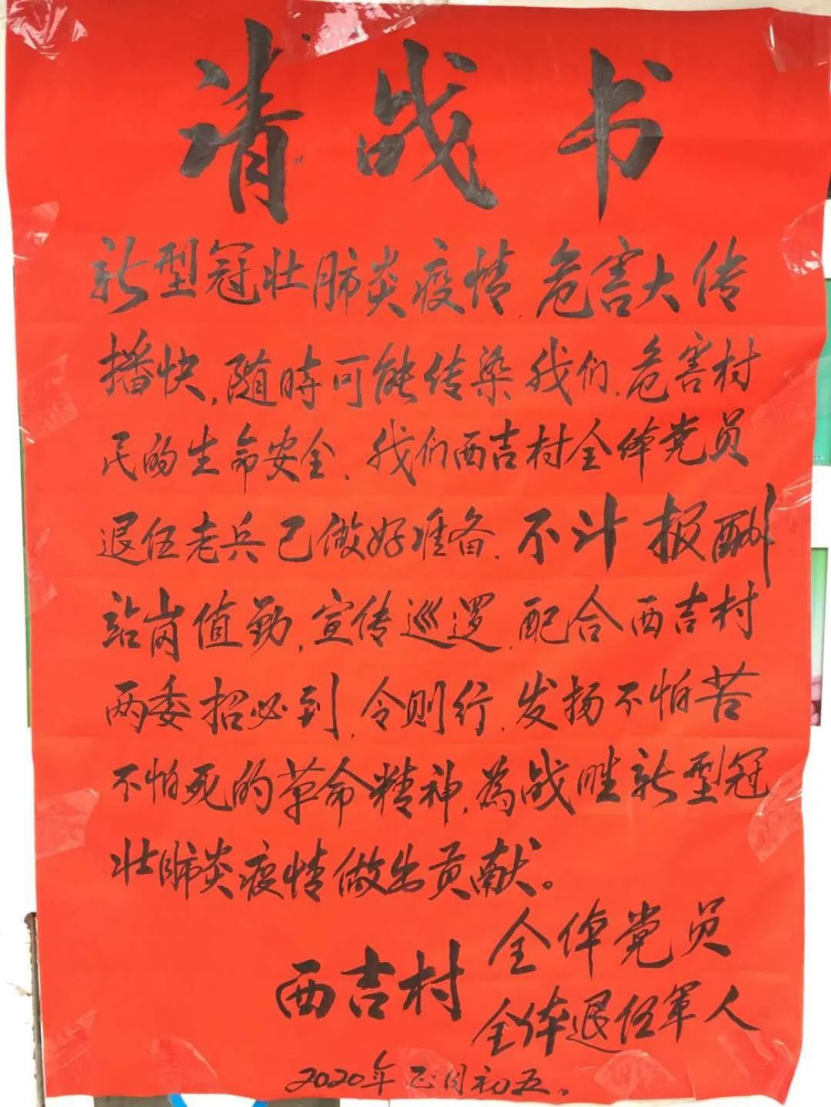 请战书
新型冠壮肺炎疫情,危害大传
播快,随时可能传染我们,危害村
民的生命安全,我们西吉村全体党员
退伍老兵已做好准备,不计报酬
站岗值勤,宣传巡逻,配合西吉村
两委招必到,令则行,发扬不怕苦
不怕死的革命精神,為战胜新型冠
壮肺炎疫情做出贡献。
西吉村
全体党员
全体退伍軍人
2020年正月初五。